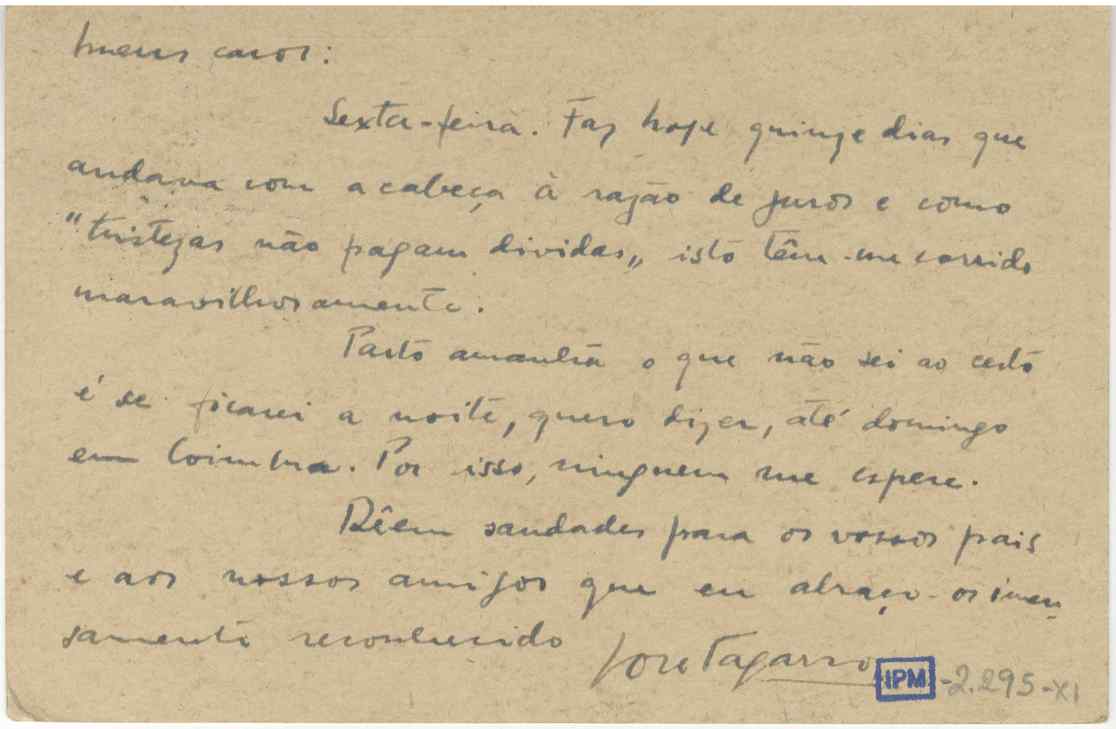 Meus caros:
Sexta-feira. Faz hoje quinze dias que
andava com a cabeça à razão de juros e como
"tristezas não pagam dividas„ isto têm-me corrido
maravilhosamente.
Parto amanhã o que não sei ao certo
é se ficarei a noite, quero dizer, até domingo
em Coimbra. Por isso, ninguem me espere.
Dêem saudades para os vossos pais
e aos nossos amigos que eu abraço-os imen
samente reconhecido
José Tagarro
IPM -2.295-XI